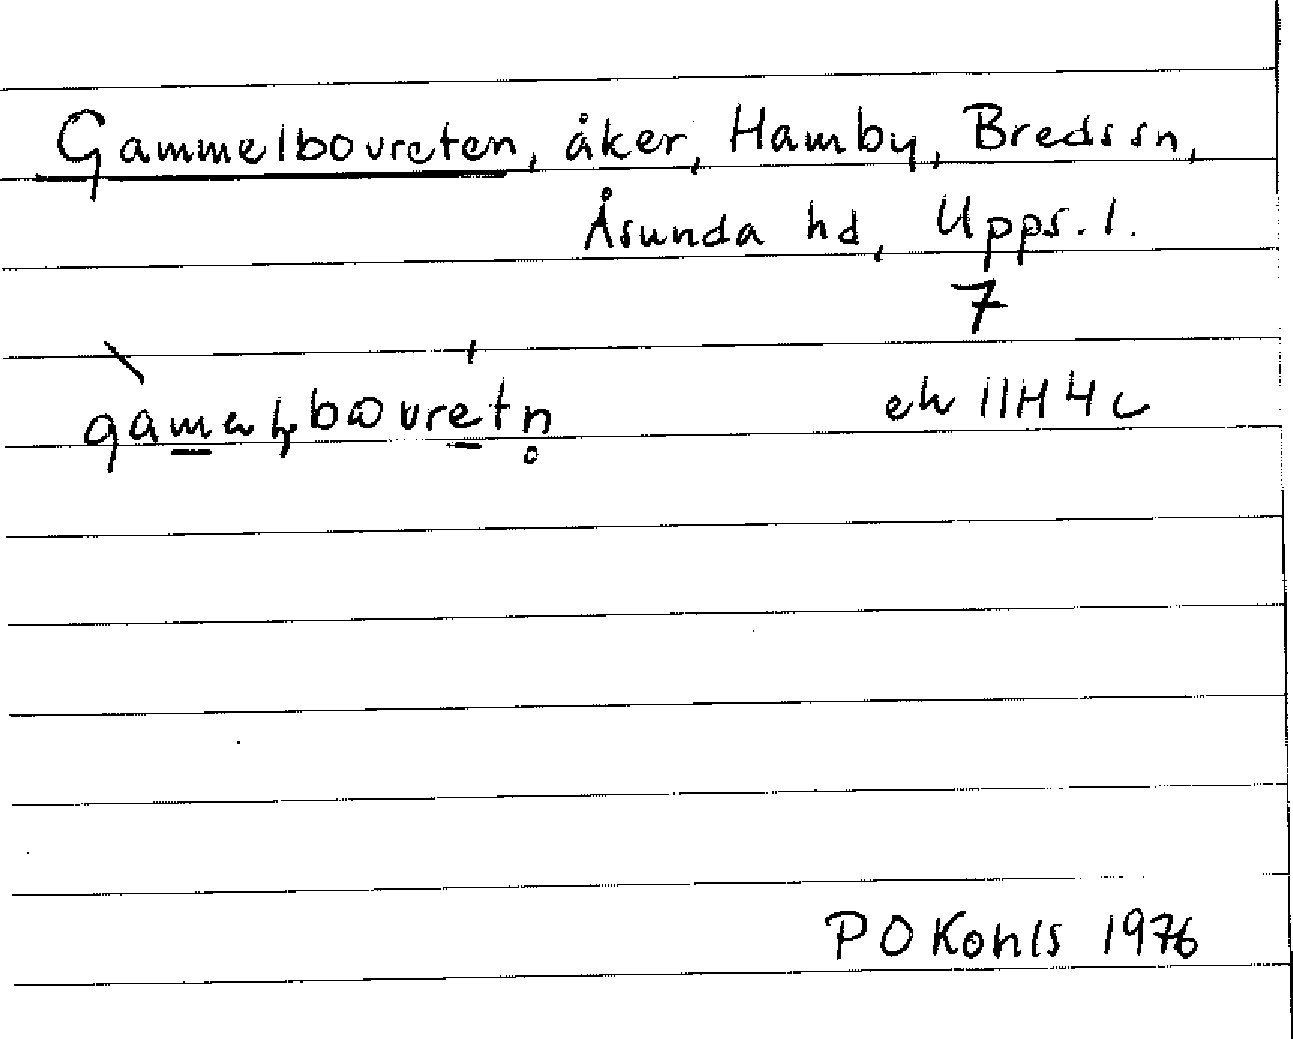 Gammelbovreten, åker, Hamby, Bredssn,
Åsunda hd, Upps. l.
7
ek 11H4c
P O Kohls 1976